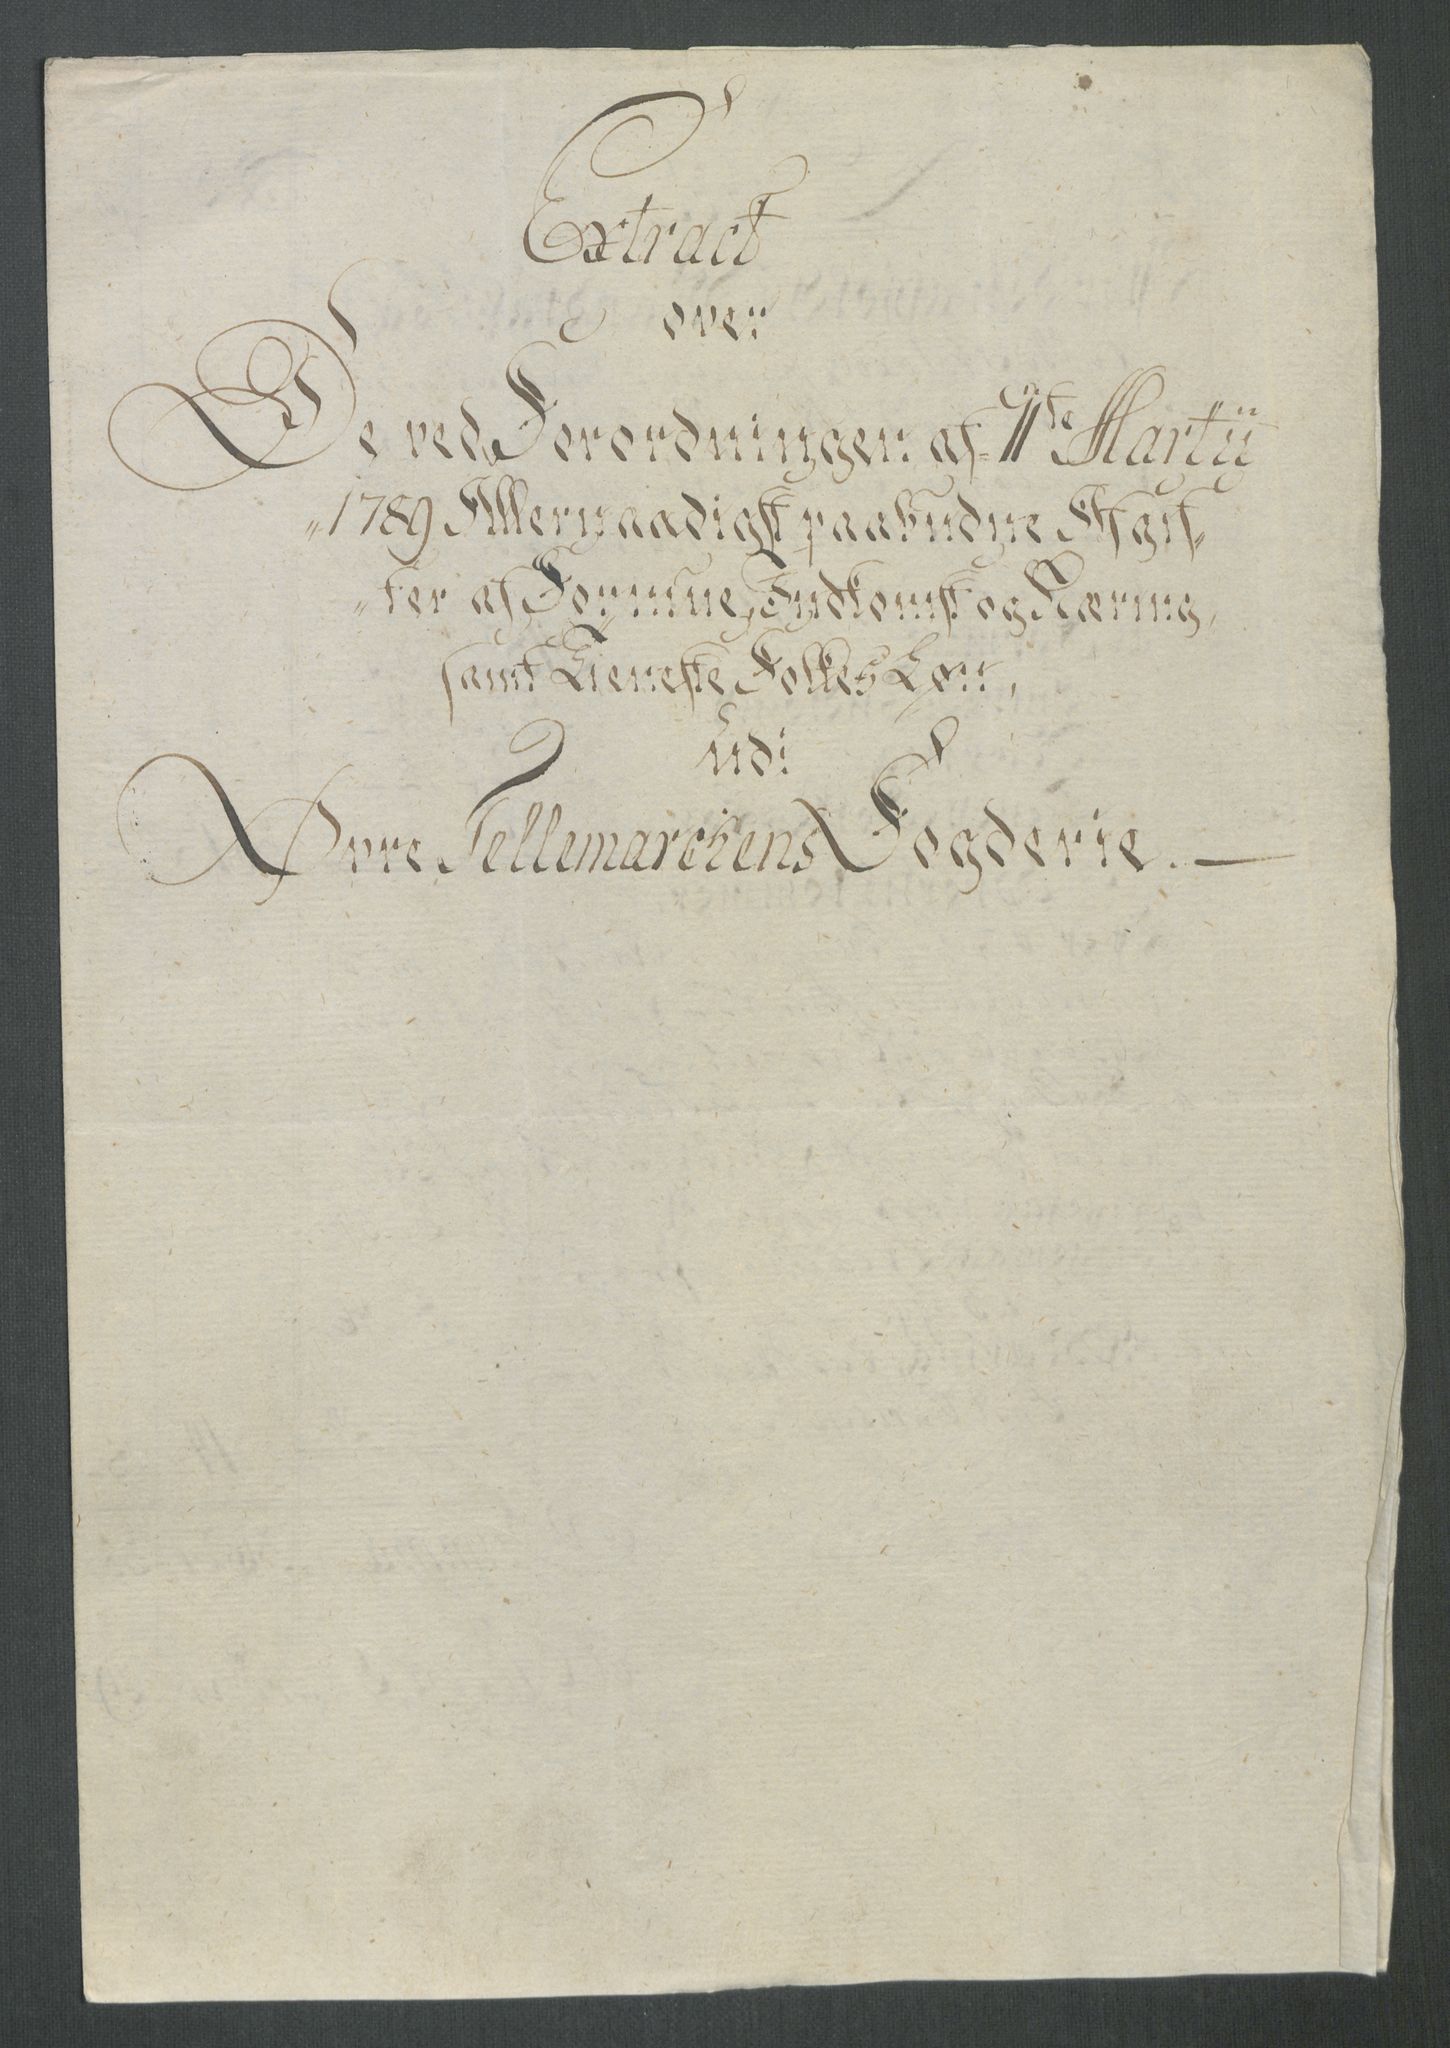 Extract
over
De ved Forordningen af 11te Martii
"1789 Allernaadigst paabudne Afgif„
"ter af Formue, Indkomst og Næring,
samt Tieneste Folkes Løn,
udi
Øvre Tellemarchens Fogderie.